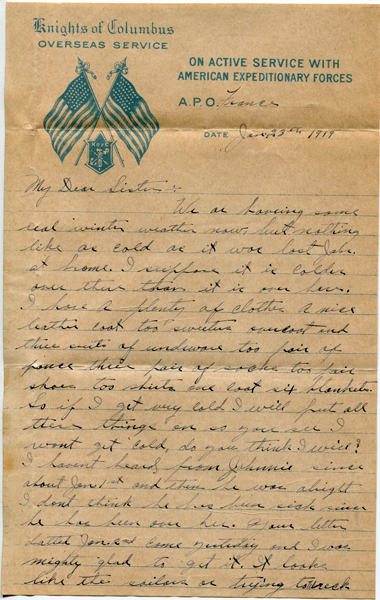 Knights of Columbus
OVERSEAS SERVICE
ON ACTIVE SERVICE WITH
AMERICAN EXPEDITIONARY FORCES
A.P.O. France
DATE Jan. 23rd 1919
My Dear Sister:
We are having some
real winter weather now but nothing
like as cold as it was last Jan.
at home. I suppose it is colder
over there than it is over here.
I have a plenty of clothes a nice
leather coat too sweaters overcoat and
three suits of undware too pair of
pance three pair of socks too pair
shoes too shirts one coat six blankets.
So if I get very cold I will put all
these things on so you see I
wont get cold, do you think I will?
I havent heard from Johnnie since
about Jan. 1st and then he was alright
I dont think he has been sick since
he has been over her. Your letter
dated Jan. 2nd came yesterday and I was
mighty glad to get it. It looks
like the sailors ar trying to reck